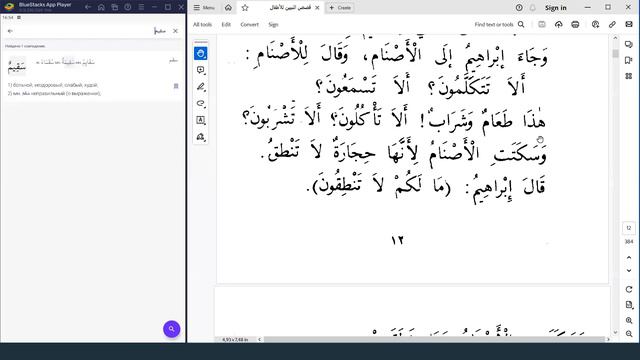 BlueStacks App Player
16:54
سقيم
Найдено 1 совпадение.
سَقِيمٌ
سقم
1) больной, нездоровый; слабый, худой;
2) неправильный (о выражении);
Menu
قصص النبيين للأطفال
+ Create
Sign in
All tools
Edit
Convert
Sign
Find text or tools
وَجَاءَ إِبْرَاهِيمُ إِلَى الْأَصْنَامِ، وَقَالَ لِلْأَصْنَامِ:
أَلَا تَتَكَلَّمُونَ؟ أَلَا تَسْمَعُونَ؟
هٰذَا طَعَامٌ وَشَرَابٌ! أَلَا تَأْكُلُونَ؟ أَلَا تَشْرَبُونَ؟
وَسَكَتَتِ الْأَصْنَامُ لِأَنَّهَا حِجَارَةٌ لَا تَنْطِقُ.
قَالَ إِبْرَاهِيمُ: (مَا لَكُمْ لَا تَنْطِقُونَ).
١٢
12
384
4,93 x 7,48 in